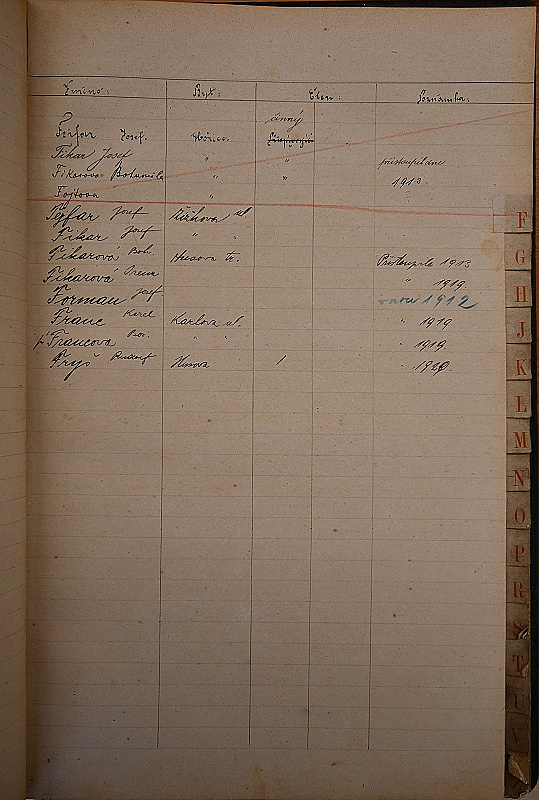 Jméno: Byt: Člen: Poznámka:
činný
Fejfar Josef. Hořice.
Fikar Josef " " přistoupil dne
Fikarova Bohumila " " 1913
Fojtova "
Fejfar Josef Žižkova ul
Fikar Josef " "
Fikarová Boh. Husova tř. Přistoupila 1913
Fikarová Irena " 1919
Forman Josef 1912
Franc Karel Karlova ul. " 1919
Francova Bož. " " " 1919
Fryš Rudolf Husova / " 1920
F
G
H
J
K
L
M
N
O
P
R
S
T
U
V